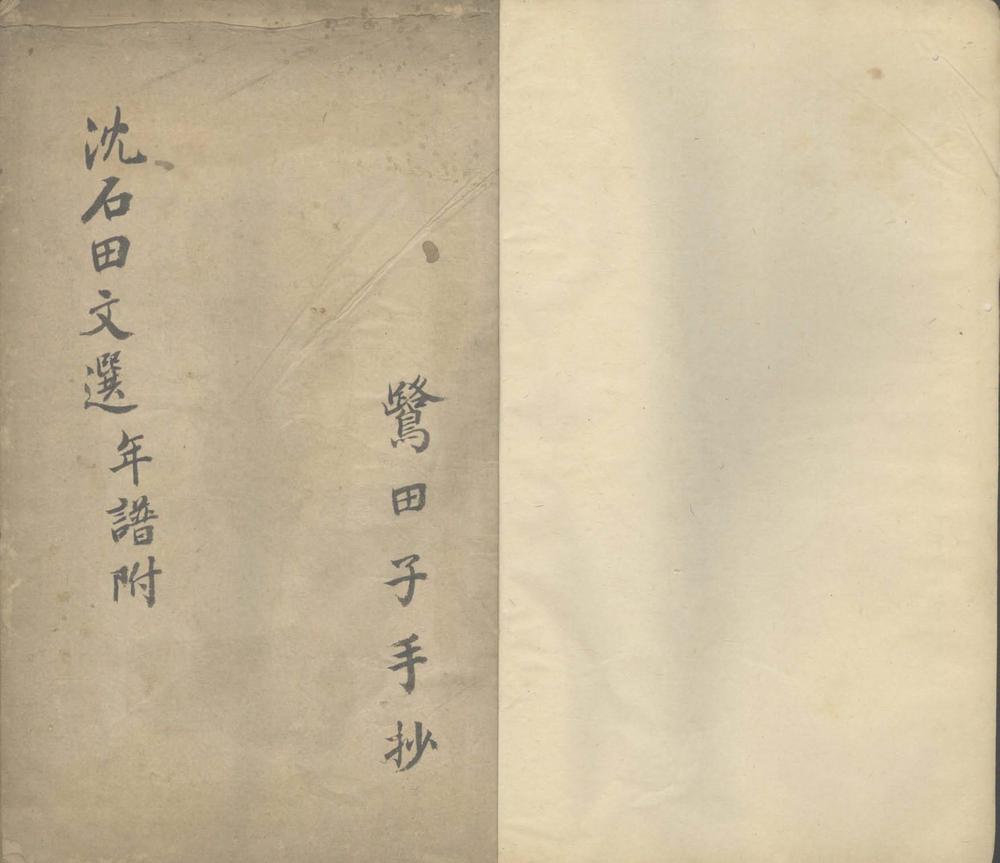 鷺田子手抄
沈石田文選年譜附